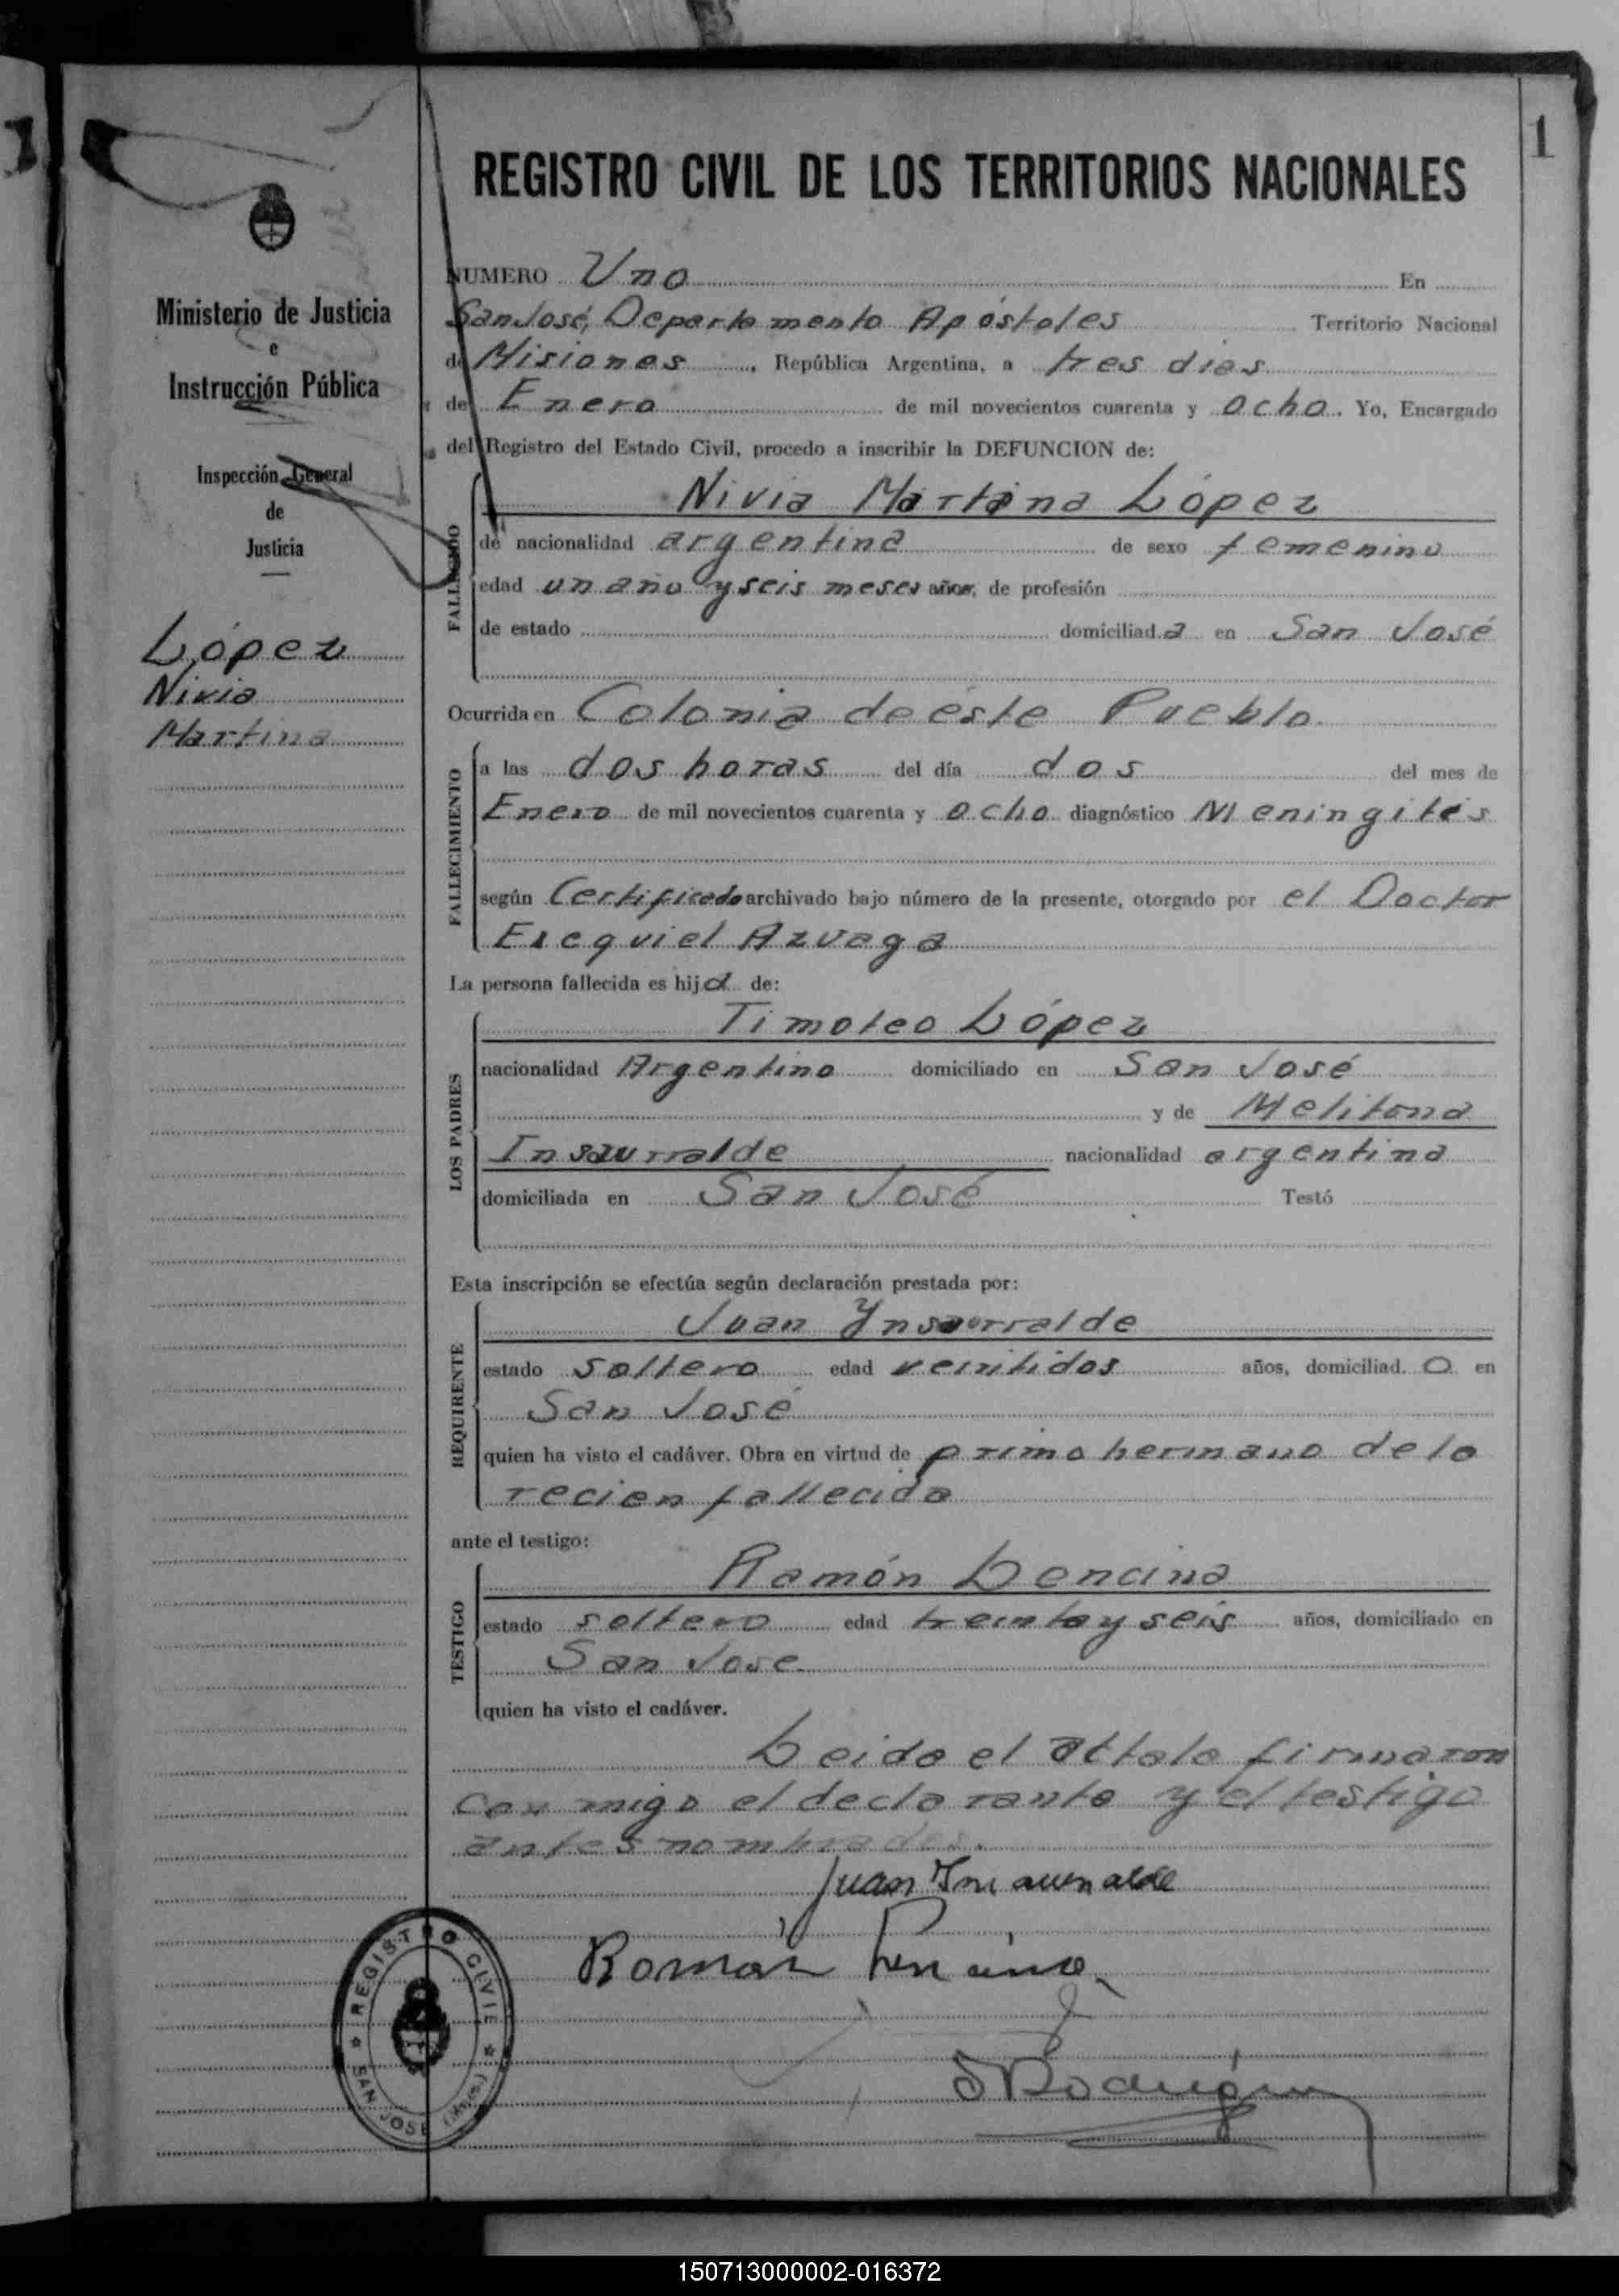 1
REGISTRO CIVIL DE LOS TERRITORIOS NACIONALES
Ministerio de Justicia
e
Instrucción Pública
Inspección General
de
Justicia
López
Nivia
Martina
NUMERO Uno En
San José, Departamento Apóstoles Territorio Nacional
de Misiones, República Argentina, a tres dias
de Enero de mil novecientos cuarenta y ocho. Yo, Encargado
del Registro del Estado Civil, procedo a inscribir la DEFUNCION de:
FALLECIDO
Nivia Martina López
de nacionalidad argentina de sexo femenino
edad un año y seis meses años, de profesión
de estado domiciliad.a en San José
Ocurrida en Colonia de éste Pueblo
FALLECIMIENTO
a las dos horas del día dos del mes de
Enero de mil novecientos cuarenta y ocho diagnóstico Meningitis
según Certificado archivado bajo número de la presente, otorgado por el Doctor
Exequiel Azuaga
La persona fallecida es hija de:
LOS PADRES
Timoteo López
nacionalidad Argentino domiciliado en San José
y de Melitona
Insaurralde nacionalidad argentina
domiciliada en San José Testó
Esta inscripción se efectúa según declaración prestada por:
REQUIRENTE
Juan Ynsaurralde
estado soltero edad veintidos años, domiciliad.o en
San José
quien ha visto el cadáver. Obra en virtud de primo hermano de la
recien fallecida
ante el testigo:
TESTIGO
Ramón Lencina
estado soltero edad treinta y seis años, domiciliado en
San Jose
quien ha visto el cadáver.
Leida el acta la firmaron
con migo el declarante y el testigo
antes nombrados.
Juan Insaurralde
Román Lencina
REGISTRO CIVIL
SAN JOSE
150713000002-016372